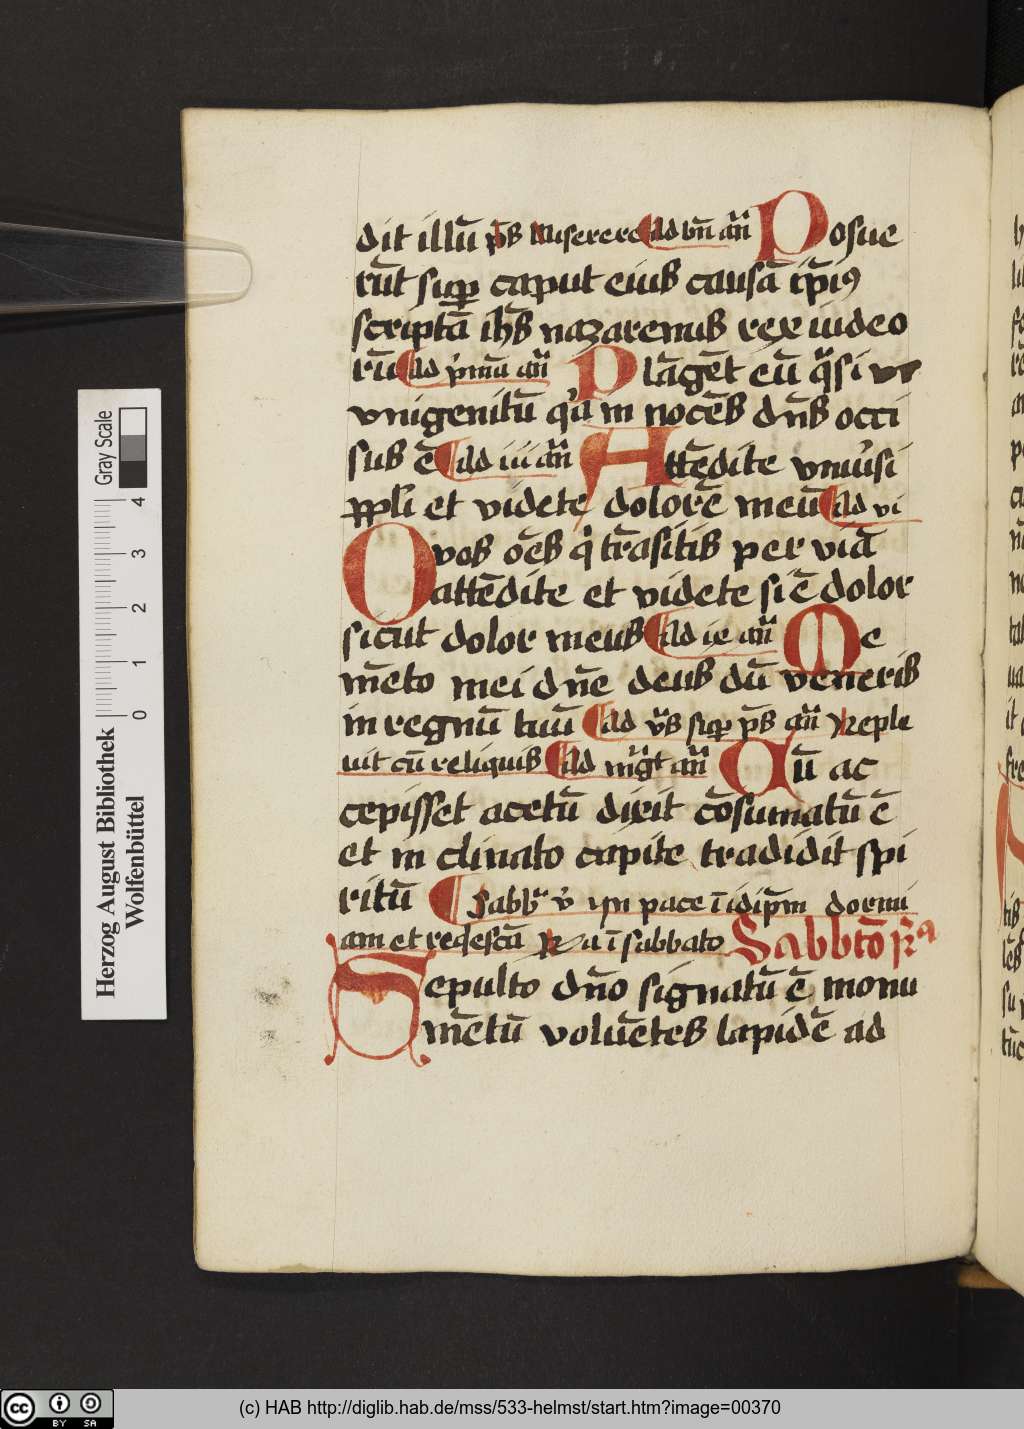 dit illū p̄s Miserere Ad bn̄ an̄ Posue
rūt suꝑ caput eius causā ip̄iꝰ
scriptā ih̄s nazarenus rex iudeo
rū Ad p̍mā an̄ Plāgēt eū q̄si
vnigenitū q̍a in nocēs dn̄s occi
sus ē Ad iii an̄ Attēdite vniu̍si
ppl̍i et videte dolorē meū Ad vi
O vos oēs q̍ trāsitis per viā
attēdite et videte si ē dolor
sicut dolor meus Ad ix an̄ Me
mēto mei dn̄e deus dū veneris
in regnū tuū Ad v̄s suꝑ p̄s an̄ Reple
uit cū reliquis Ad m̄gt an̄ Cū ac
cepisset acetū dixit cōsumatū ē
et in clinato capite tradidit spi
ritū Sabb̄ v̍ yn pace ī idip̄m dormi
am et reqescā Ra ī sabbato Sabbtō
Sepulto dn̄o signatū ē monu
mētū voluētes lapidē ad
Herzog August Bibliothek
Wolfenbüttel
0 1 2 3 4
Gray Scale
cc BY SA
(c) HAB http://diglib.hab.de/mss/533-helmst/start.htm?image=00370